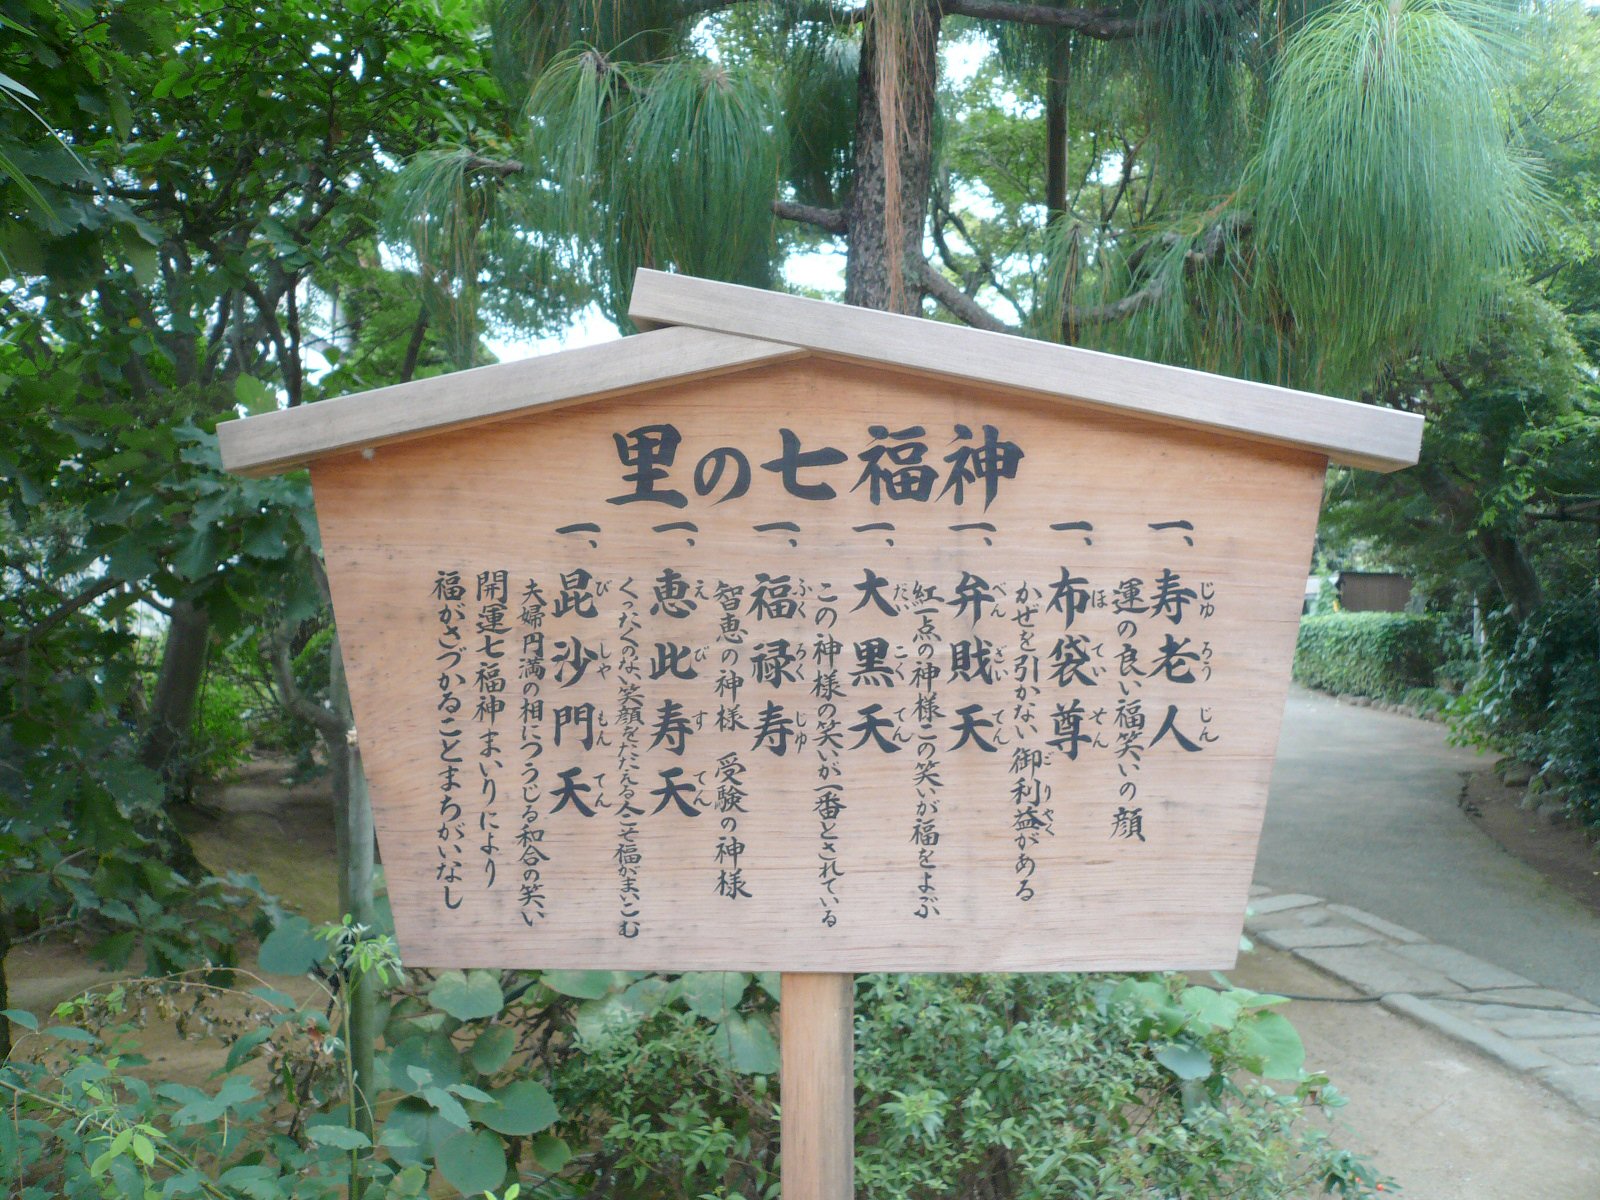 里の七福神
一、寿老人
じゅろうじん
運の良い福笑いの顔
一、布袋尊
ほていそん
かぜを引かない御利益がある
ごりやく
一、弁財天
べんざいてん
紅一点の神様この笑いが福をよぶ
一、大黒天
だいこくてん
この神様の笑いが一番とされている
一、福禄寿
ふくろくじゅ
智恵の神様 受験の神様
一、恵此寿天
えびすてん
くったくのない笑顔をたたえる今こそ福がまいこむ
一、昆沙門天
びしゃもんてん
夫婦円満の相につうじる和合の笑い
開運七福神まいりにより
福がさづかることまちがいなし